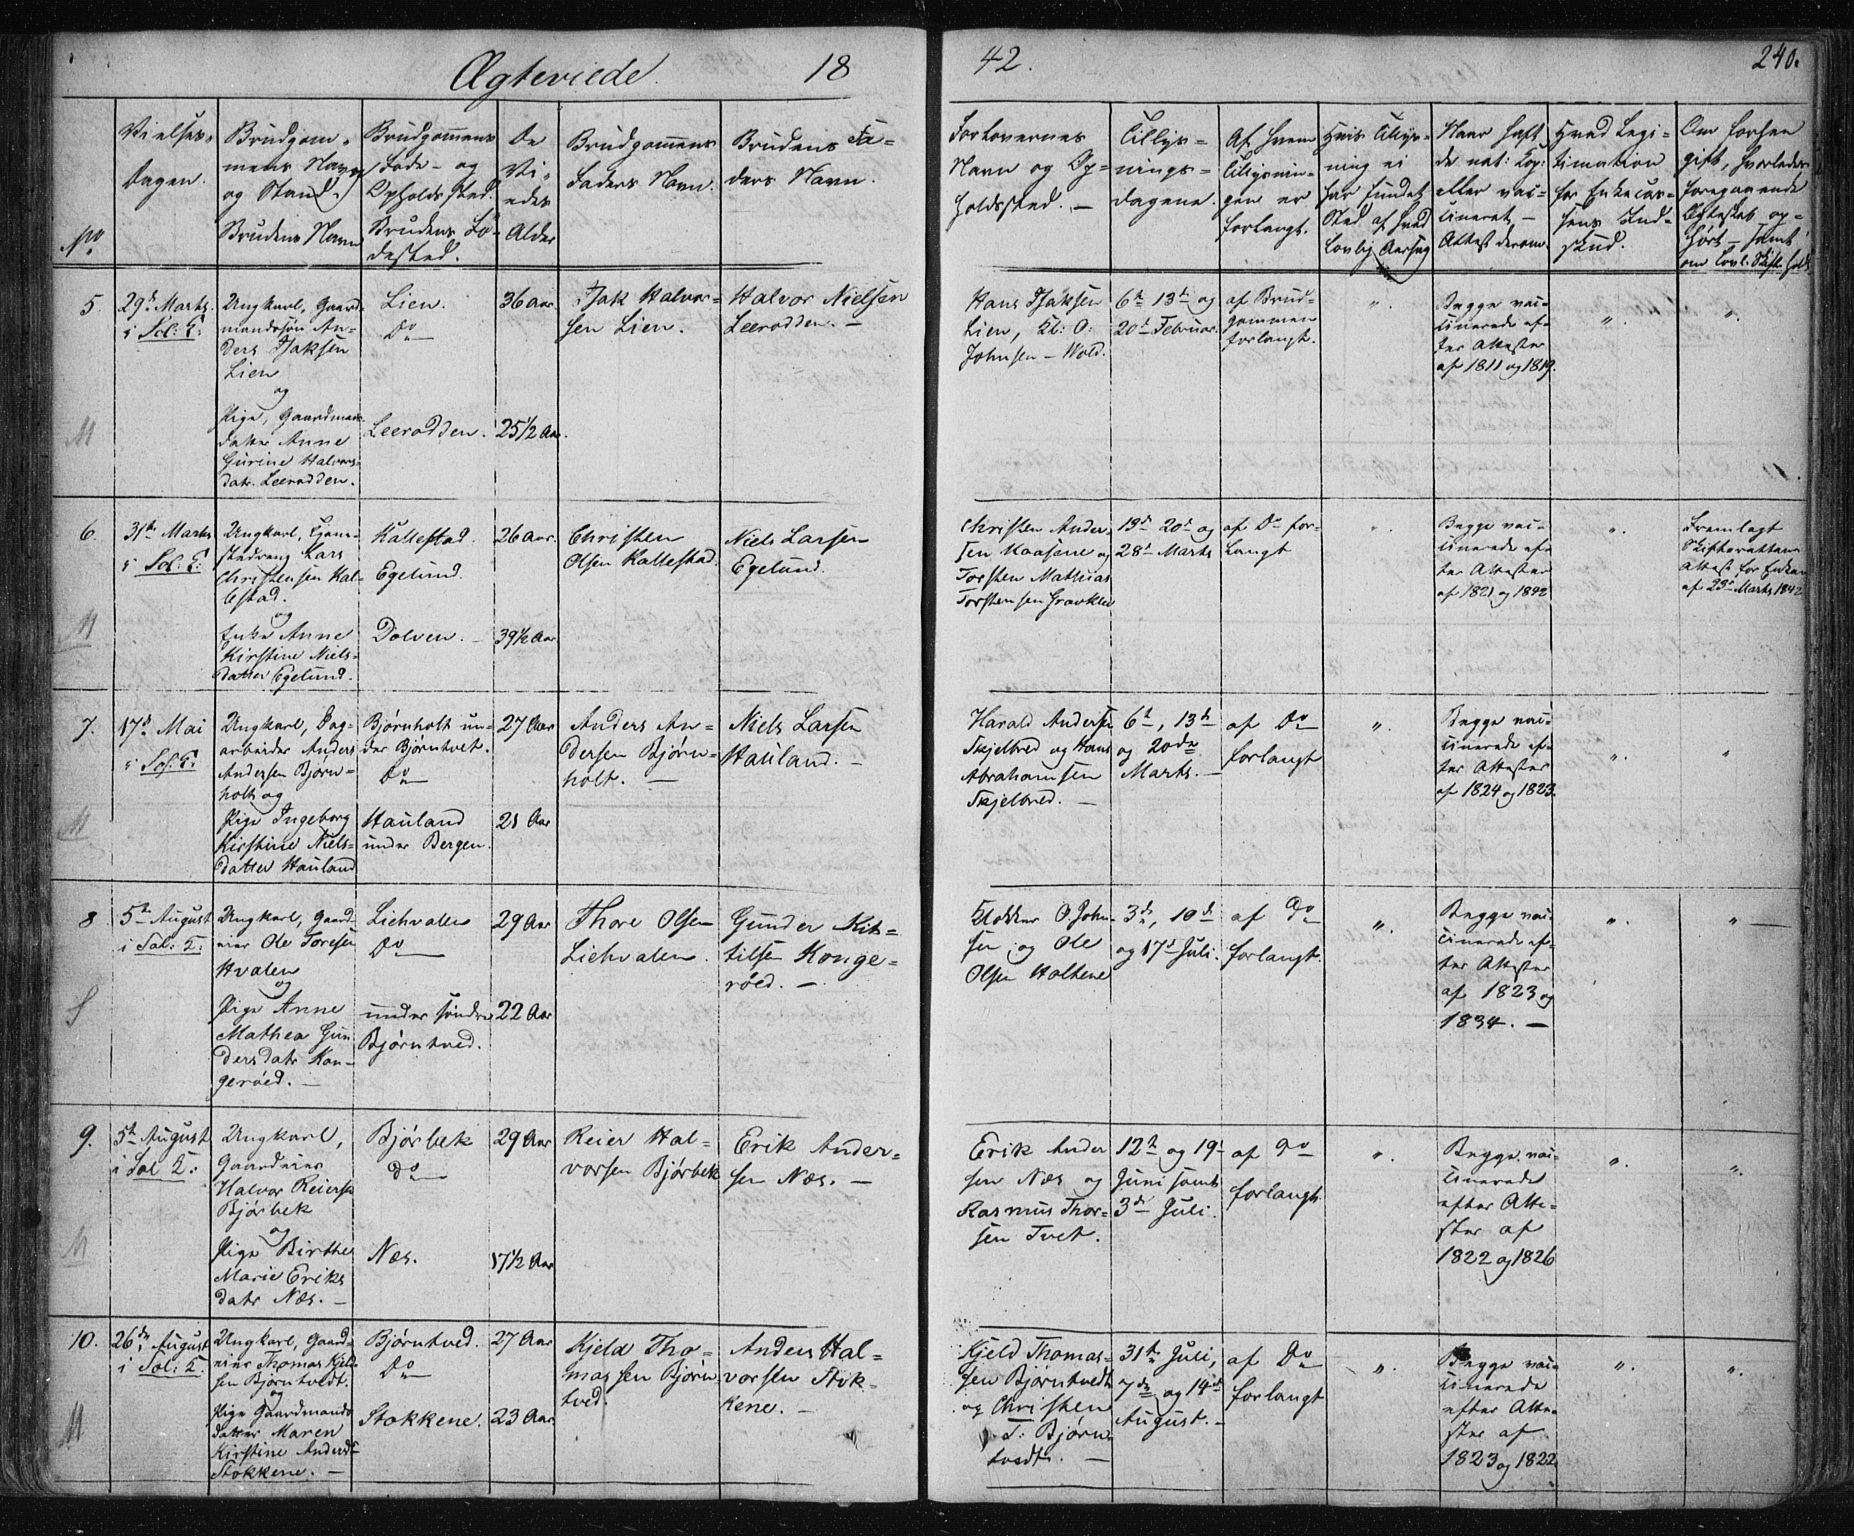 Ægteviede. 18
42. 240.
No.
Vielses-
dagen.
Brudgom-
mens Navn
og Stand.
Brudens Navn
Brudgommens
Føde- og
Opholdssted.
Brudens Fø-
dested.
De
Vi-
edes
Alder
Brudgommens
Faders Navn.
Brudens Fa-
ders Navn.
Forlovernes
Navn og Op-
holdssted. —
Tillys-
nings-
dagene.
Af hvem
Tillysnin-
gen er
forlangt.
Hvis Tillys-
ning ei
har fundet
Sted af hvad
lovlig Aarsag
Naar haft
de nat: Kop:
eller vac-
cineret —
Attest derom.
Hvad Legi-
timation
for Enkecas-
sens Ind-
skud.
Om forhen
gift, hvorledes
foregaaende
Ægteskab op-
hørt — samt
om lovl. Skifte holdt
5.
29de Marts
i Sol: K:
Ungkarl, Gaard-
mandssøn An-
ders Isaksen
Lien
og
Pige, Gaardmands
datter Anne
Gurine Halvors-
datr. Leerodden.
Lien.
Do
Leerodden.
36 Aar.
25 1/2 Aar.
Isak Halvor-
sen Lien.
Halvor Nielsen
Leerodden. —
Hans Isaksen
Lien, Kl: O:
Johnsen — Wold.
6te 13de og
20de Februar.
af Brud-
gommen
forlangt.
".
Begge vac-
cinerede ef-
ter Attester
af 1811 og 1819.
".
".
M
6.
31te Marts
i Sol: K:
Ungkarl,
Lars
Christensen Kal-
lestad.
og
Enke Anne
Kirstine Niels-
datter Egelund.
Kallestad.
Egelund.
Dolven. —
26 Aar.
39 1/2 Aar
Christen
Olsen Kallestad.
Niels Larsen
Egelund.
Christen Ander-
sen Haasene og
Torsten Mathias
Torstensen Gravklev
13de 20de og
28de Marts
af Do for-
langt
".
Begge vac-
cinerede ef-
ter Attester
af 1821 og 1842
".
Fremlagt
Skifterettens
Attest for Enken
af 23de Marts 1842
M
7.
17de Mai
i Sol: K:
Ungkarl, Dag-
arbeider Anders
Andersen Bjørn-
holt og
Pige Ingeborg
Kirstine Niels-
datter Hauland
Bjørnholt un-
der Bjørntvet.
Do
Hauland
under Bergen.
27 Aar
21 Aar
Anders An-
dersen Bjørn-
holt. —
Niels Larsen
Hauland. —
Harald Andersen
Skjelbred og Hans
Abrahamsen
Skjelbred. —
6te, 13de
og 20de
Marts. —
af Do
forlangt
".
Begge vac-
cinerede ef-
ter Attester
af 1824 og 1823.
".
"
M
8
5te August
i Sol: K:
Ungkarl, Gaard-
eier Ole Toresen
Hvalen
og
Pige Anne
Mathea Gun
dersdatr Kon-
gerøed. —
Liehvalen
Do
under søndre
Bjørntved.
29 Aar
22 Aar
Thore Olsen
Liehvalen.
Gunder Kit-
tilsen Konge-
røed. —
Klokker O. John-
sen og Ole
Olsen Holtene
3de, 10de
og 17de Juli.
af Do
forlangt.
".
Begge vac-
cinerede ef-
ter Attester
af 1823 og
1834. —
".
" —
S
9.
5te August
i Sol K:
Ungkarl,
Gaardeier
Halvor Reiersen
Bjørbek
og
Pige Birthe
Marie Eriks
datr Næs. —
Bjørbek
Do
Næs.
29 Aar
17 1/2 Aar
Reier Hal-
vorsen Bjørbek
Erik Ander-
sen Næs. —
Erik Ander
sen Næs og
Rasmus Thor-
sen Tvet.
12te og 19de
Juni samt
3de Juli.
af Do
forlangt.
".
Begge vac-
cinerede
efter Atte-
ster af
1822 og 1826
".
".
M
10.
26de August
i Sol: K:
Ungkarl, Gaard-
eier Thomas Kjeld-
sen Bjørntvedt.
og
Pige Gaardmands
datter Maren
Kirstine Andersdr
Stokkene. —
Bjørntved.
Do
Stokkene.
27 Aar
23 Aar
Kjeld Tho-
massen Bjørn
tved.
Anders Hal-
vorsen Stok-
kene. —
Kjeld Thomas-
sen Bjørntvedt
og Christen
T: Bjørn
tvedt. —
31te Juli,
7de og 14de
August. —
af Do
forlangt
".
Begge vac-
cinerede
efter Atte-
ster af
1823 og 1822
".
".
M